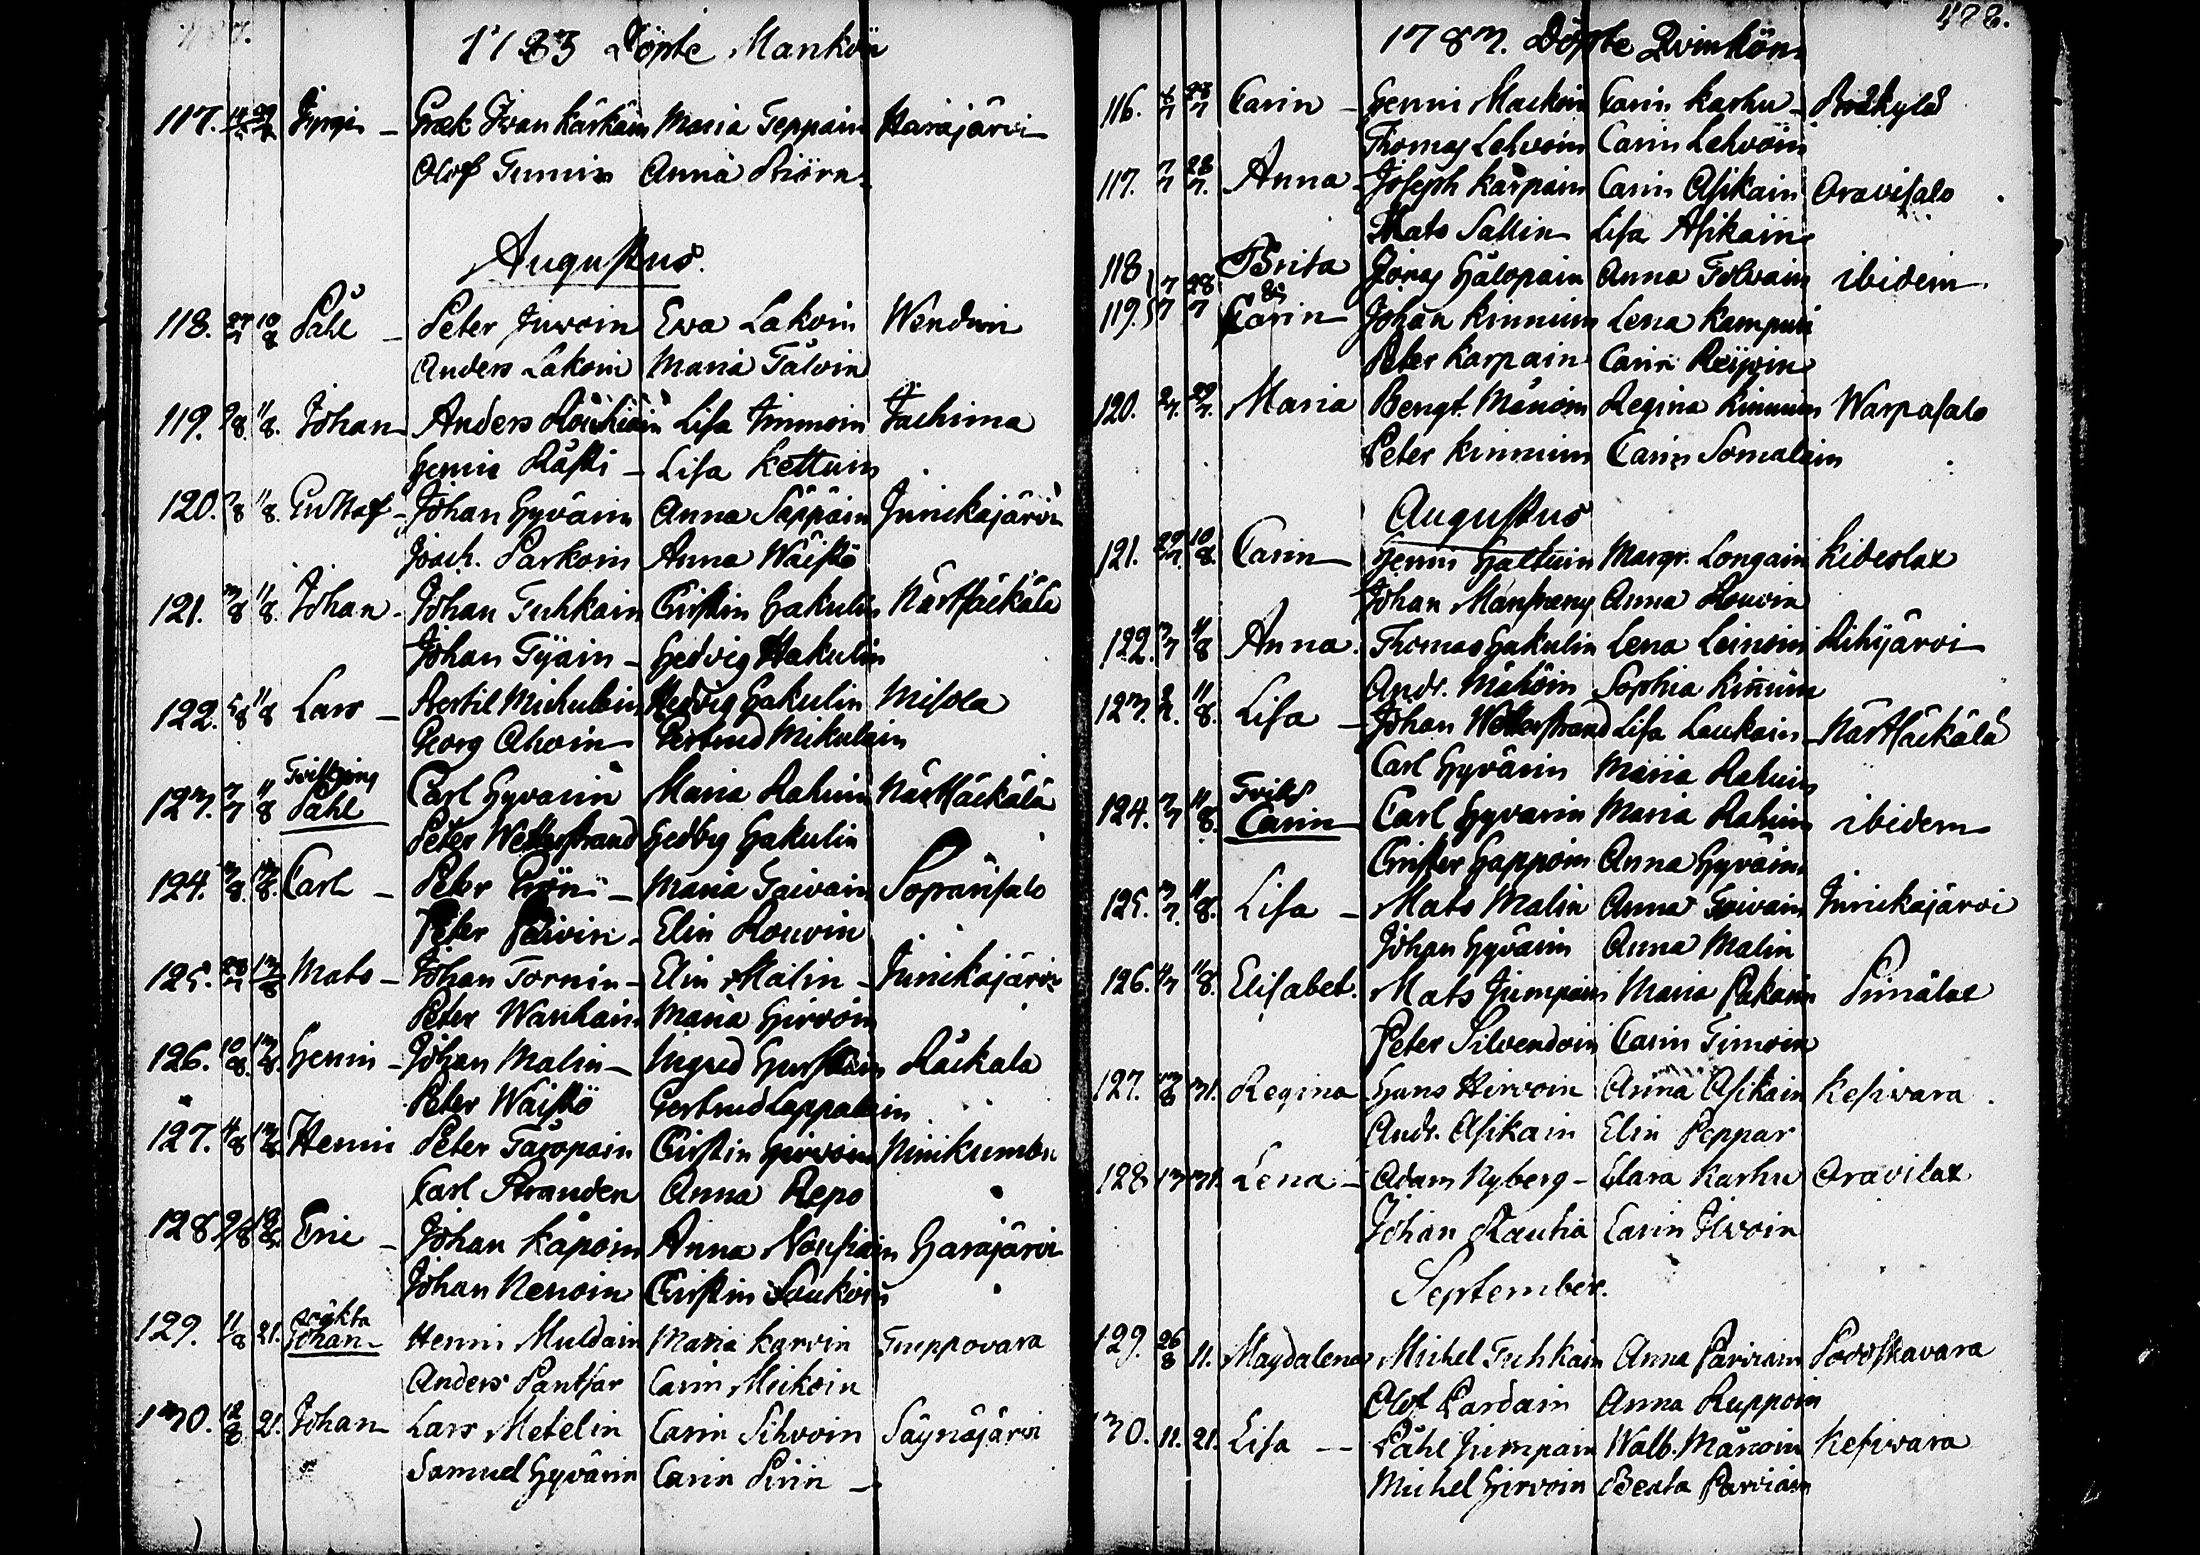 1783 Döpte Mankön
117. Jürgin – Græk Ivan Kärkäin Maria Teppain Harajärvi
Olof Tumin Anna Biörn
Augustus.
118. 27/7 10/8 Påhl – Peter Juvoin Eva Lakoin
Anders Lakoin Maria Tälvin
119. 9/8. 11/8. Johan Anders Lisa Immoin Jachima
Henric Räski – Lisa Kettuin
120. 11/8. Gustaf – Johan Hyvärin Anna Säppäin Junickajärvi
Joach. Parkoin Anna Wäistö
121. 3/8 11/8. Johan – Johan Tuhkain Christin Hakulin Närsäckälä
Johan Tijain – Hedvig Hakulin
122. 5/8 11/8 Lars – Bertil Michulain Hedvig Hakulin Misola
Georg Ahoin Gertrud Mikulain
Tvilling
123. 7/7 11/8 Påhl Carl Hyvärin Maria Rahuin Närsäckälä
Peter Wetterstrand Hedvig Hakulin
124. 3/8. 13/8. Carl – Peter Grön – Maria Taivain Soparisalo
Peter Päivin – Elin Rouvin
125. 28/7 13/8 Mats – Johan Tornin – Elin Malin – Junickajärvi
Peter Wanhain Maria Hirvoin
126. 10/8. 13/8. Henric – Johan Malin – Ingred Räckälä
Peter Wäistö Gertrud Lappalain
127. 4/8 13/8 Henric Peter Taropain Christin Hirvoin Niinikumbu
Carl Stranden Anna Repo
128 9/8 Eric – Johan Kåpoin Anna Nousiain Harajärvi
Johan Nenoin Christin Laukoin
oäkta
129. 11/8 21. Johan – Henric Muldain Maria Karvin Tuppovara
Anders Pantsar Carin Meikoin
130. 12/8 21. Johan Lars Metelin Carin Sihvoin Säynäjärvi
Samuel Hyvärin Carin Pirin –
478.
1783. Döpte Qvinkön
116. 6/7 28/7 Carin – Henric Mackoin Carin Karhu – Bräkylä
Thomas Lehvoin Carin Lehvoin
117. 7/7 28/7. Anna – Joseph Karpain Carin Asikain Oravisalo
Mats Sallin Lisa Asikain
118 Brita Jöns Hålopain Anna Tolvain ibidem
119. 7/7 28/7 & Carin Johan Kinnuin Lena Kampuri
Peter Karpain Carin Reijoin
120. 2/7. 29/7. Maria Bengt Månoin Regina Kinnuin Warpasalo
Peter Kinnuin Carin Somalain
Augustus
121. 29/7. 10/8. Carin – Henric Hattuin Margr. Longain Kideslax
Johan Mansræng Anna Rouvin
122. 3/7 11/8 Anna. Thomas Hakulin Lena Leinoin Rihijärvi
Andr. Måhöin Sophia Kiñuin
123. 2/7. 11/8. Lisa – Johan Wetterstrand Lisa Laukain – Närsäckälä
Carl Hyvärin Maria Rahuin
Tvill
124. 3/7 11/8. Carin Carl Hyvärin Maria Rahuin ibidem
Christer Happoin Anna Hyväin
125. 3/7. 11/8. Lisa – Mats Malin Anna Taivain Junickajärvi
Johan Hyvärin Anna Malin
126. 4/7 11/8. Elisabet. Mats Jumpain Maria Pakain Pimälax
Peter Silvendoin Carin Timoin
127. 13/8 31. Regina Hans Hirvoin Anna Asikain Kesivara
Andr. Asikain Elin Peppar
128 13 31. Lena – Adam Nyberg – Clara Karhu Oravilax
Johan Rautia Carin Ilvoin
September.
129. 26/8 11. Magdalena Michel Tuhkain Anna Parviain Podoskavara
Olof Pardain Anna Ruppoin
130. 11. 21. Lisa – – Påhl Jumpain Walb. Månoin Kesivara
Michel Hirvoin Beata Parviain